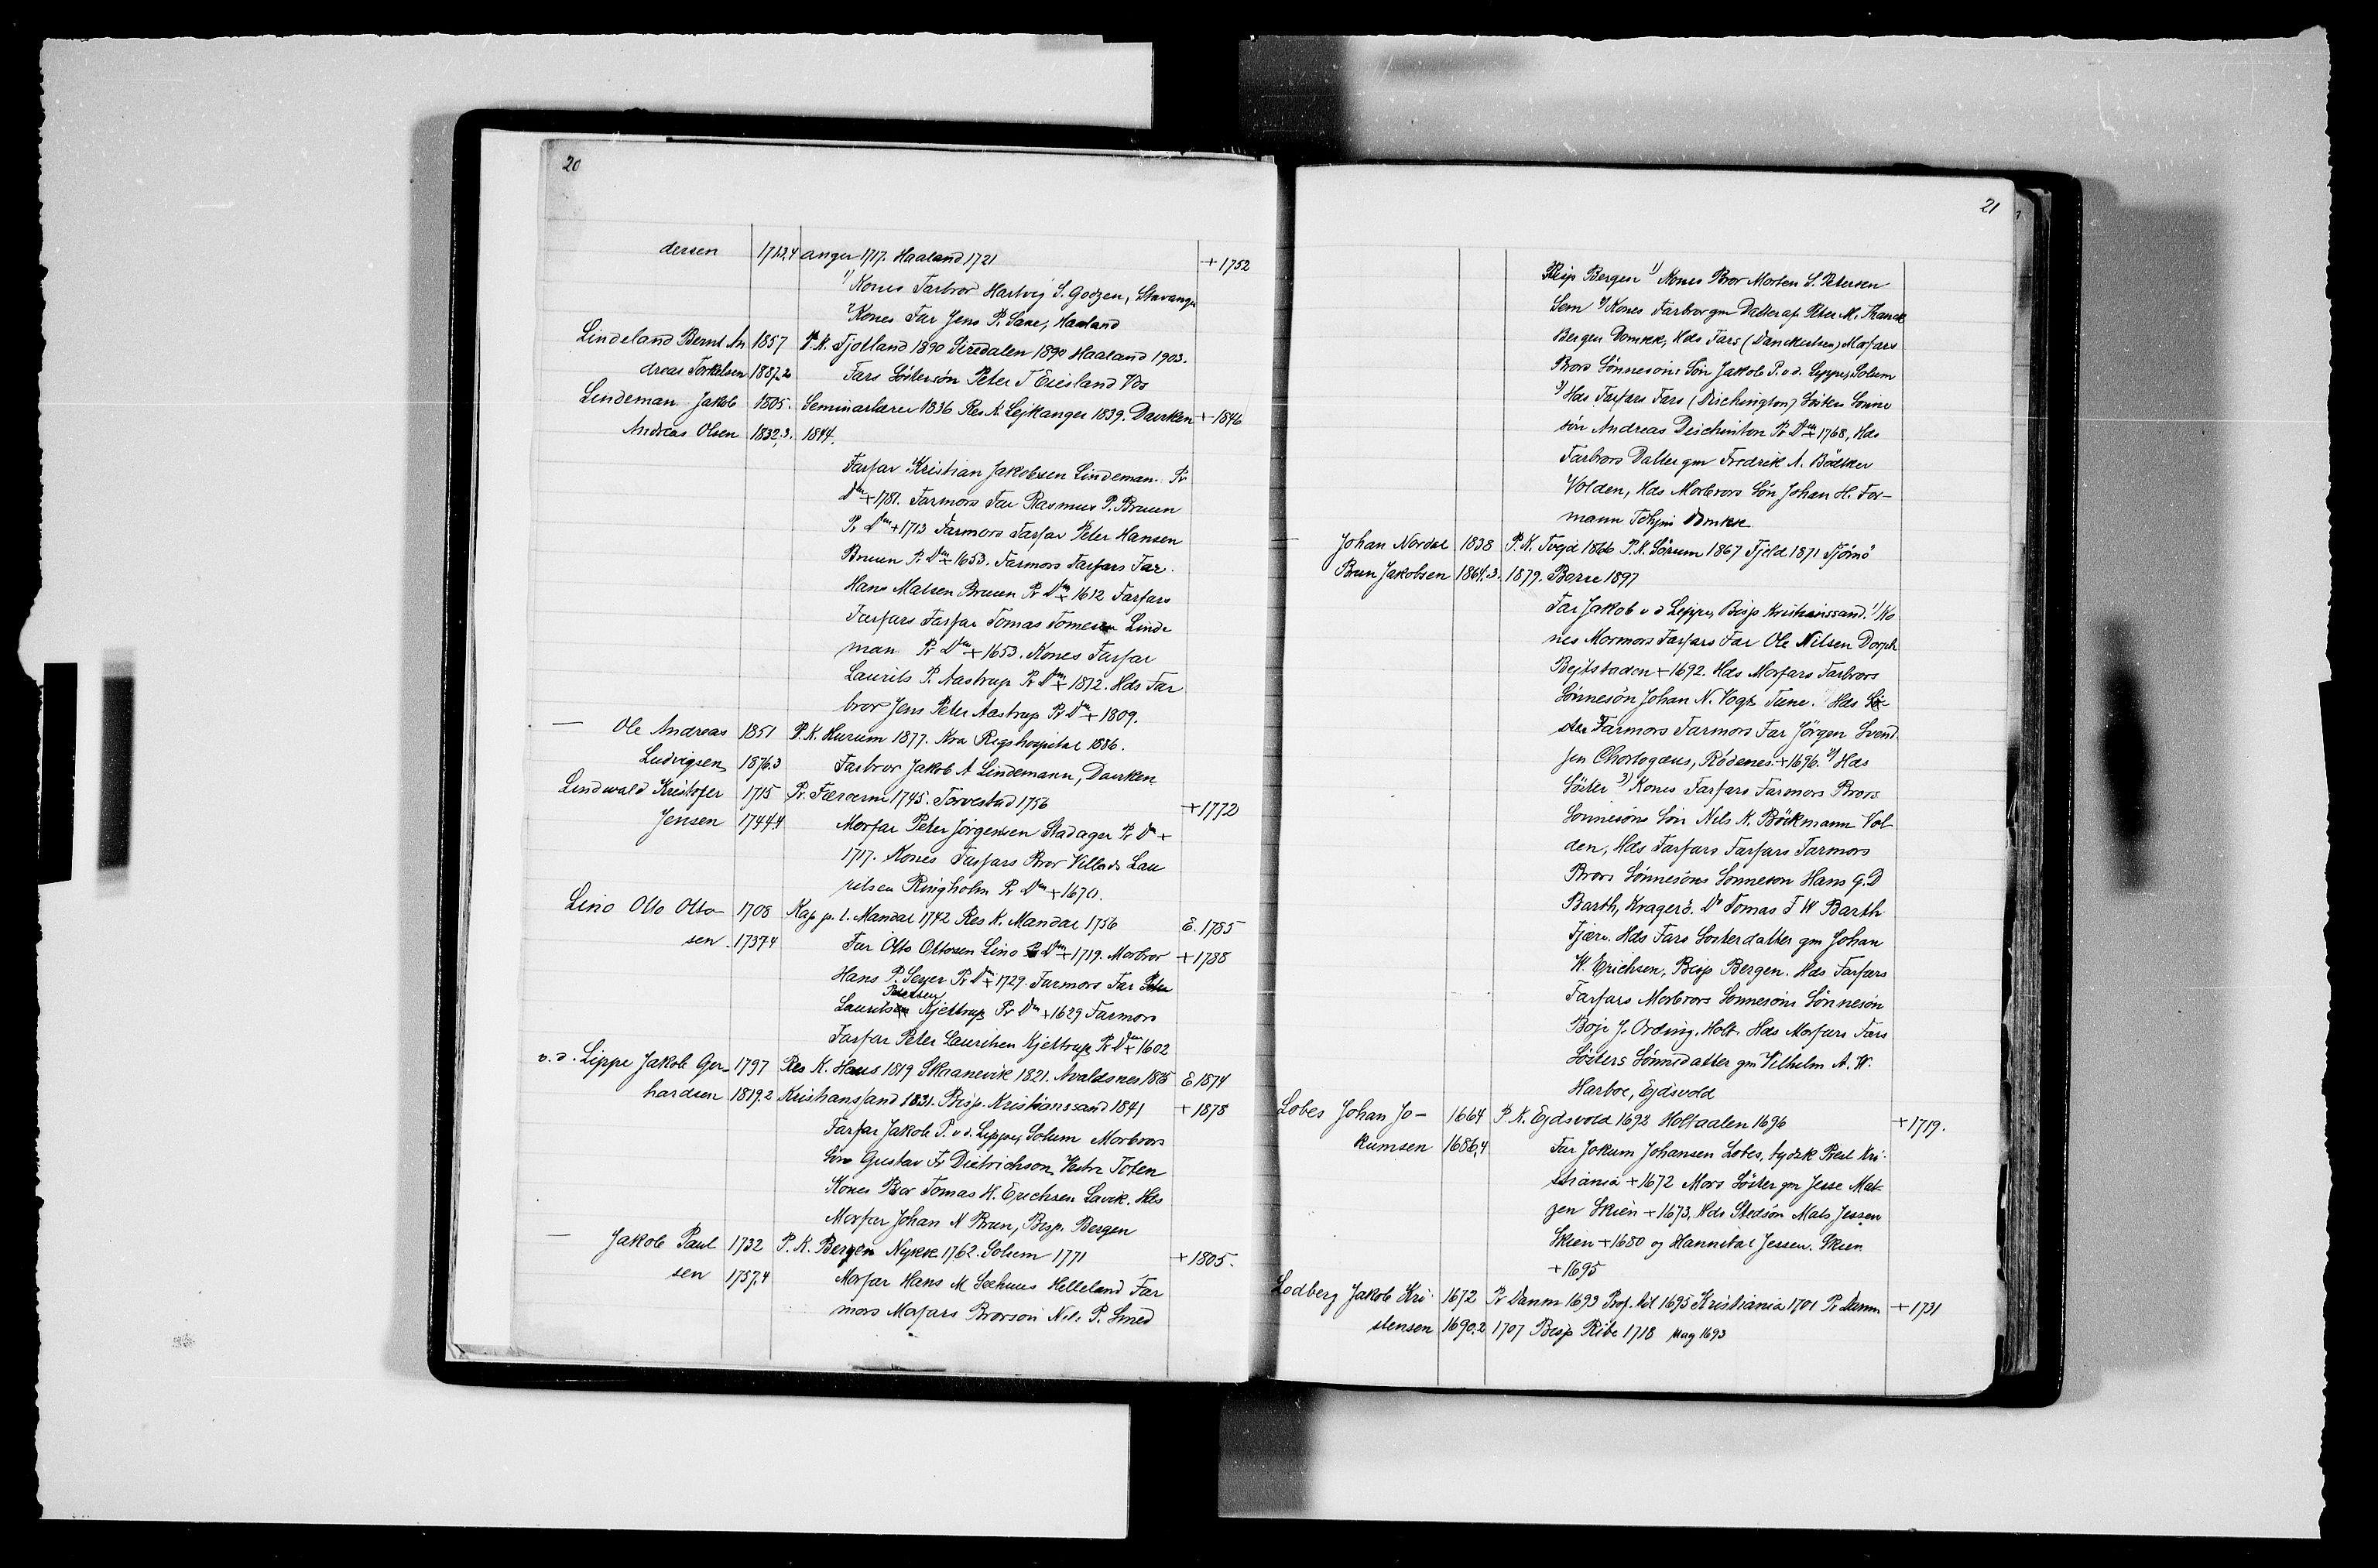 20
dersen 1713,4 anger 1717. Haaland 1721 +1752
1) Kones Farbror Hartvig S. Godzen, Stavanger
2 Kones Far Jens P. Sane, Haaland
Lindeland Bernt An 1857 P. K. Fjotland 1890 Siredalen 1890 Haaland 1903.
dreas Torkelsen 1887.2 Fars Søstersön Peter T Eiesland Vos
Lindeman Jakob 1805. Seminarlærer 1836 Res. K. Lejkanger 1839. Daviken +1846
Andreas Olsen 1832,3. 1844.
Farfar Kristian Jakobsen Lindeman. Pr
Dm +1781. Farmors Far Rasmus P. Bruun
Pr Dm +1713 Farmors Farfar Peter Hansen
Bruun Pr Dm +1653. Farmors Farfars Far
Hans Matsen Bruun Pr Dm +1612 Farfars
Farfars Farfar Tomas Tomesen Linde
man Pr Dm +1653. Kones Farfar
Laurits P. Aastrup Pr Dm +1812. Hds Far
bror Jens Peter Aastrup Pr Dm +1809.
— Ole Andreas 1851 P. K. Hurum 1877. Kra Rigshospital 1886.
Ludvigsen 1876.3 Farbror Jakob A Lindemann, Daviken
Lindwald Kristofer 1715 Pr. Færøerne 1745. Torvestad 1756 +1772
Jensen 1744.4 Morfar Peter Jørgensen Stadager Pr Dm +
1717. Kones Farfars Bror Villads Lau
ritsen Ringholm Pr Dm +1670.
Lino Otto Otto- 1708 Kap p. l. Mandal 1742 Res K. Mandal 1756 E. 1785
sen 1737.4 Far Otto Ottosen Lino Pr Dm +1719. Morbror +1788
Hans P. Seyer Pr Dm +1729. Farmors Far Peter
Petersen
Lauritsen Kjettrup Pr Dm +1629 Farmors
Farfar Peter Lauritsen Kjettrup Pr Dm +1602
v. d. Lippe Jakob Ger- 1797 Res K. Haus 1819 Skaanevik 1821. Avaldsnes 1825 E 1874
hardsen 1819.2 Kristianssand 1831. Bisp. Kristianssand 1841 +1878
Farfar Jakob P. v. d. Lippe, Solum Morbrors
Sön Gustav Fr Dietrichson, Vestre Toten
Kones Bror Tomas K. Erichsen Lavik. Hds
Morfar Johan N Brun, Bisp. Bergen
— Jakob Paul 1732 P. K. Bergen Nykk 1762. Solum 1771 +1805.
sen 1757,4 Morfar Hans M Seehuus Helleland Far
mors Morfars Brorsön Nils P. Smed
21
Bisp Bergen 1) Kones Bror Morten S. Petersen
Sem 2) Kones Farbror gm Datter af Peter M. Franck
Bergen Domkk, Hds Fars (Danckertsen) Morfars
Brors Sönnesöns Sön Jakob P. v. d. Lippe, Solum
3) Hds Farfars Fars (Deichington) Søsters Sönne
sön Andreas Deichinton Pr Dm +1768, Hds
Farbrors Datter gm Fredrik A. Bödtker
Volden, Hds Morbrors Sön Johan H. For-
mann Tdhjm Domkk
— Johan Nordal 1838 P. K. Tvejd 1866 P. K. Sörum 1867 Fjeld 1871 Tjömö
Brun Jakobsen 1861.3. 1879. Borre 1897
Far Jakob v d Lippe, Bisp Kristianssand. 1) Ko
nes Mormors Farfars Far Ole Nilsen Dorph
Bejtstaden +1692. Hds Morfars Farbrors
Sönnesön Johan N. Vogt Tune. Hds Sö-
ster Farmors Farmors Far Jörgen Svend
sen Chortogæus, Rödenes +1676. 2) Hds
Söster 3) Kones Farfars Farmors Brors
Sönnesöns Sön Nils K. Böckmann Vol
den, Hds Farfars Farfars Farmors
Brors Sönnesöns Sönneson Hans G. D
Barth, Kragerö. Do Tomas F W Barth
Fjære. Hds Fars Sösterdatter gm Johan
W. Erichsen, Bisp Bergen. Hds Farfars
Farfars Morbrors Sönnesöns Sönnesön
Boje J. Ording, Holt. Hds Morfars Fars
Söstera Sönnedatter gm Vilhelm A. W.
Harboe, Ejdsvold
Lobes Johan Jo- 1664 P. K. Ejdsvold 1692 Holtaalen 1696 +1719.
kumsen 1686,4 Far Jokum Johansen Lobes, tydsk Prest Kri-
stiania +1672 Mors Söster gm Jesse Mat
zen Skien +1673, Hds Stedsön Mats Jessen
Skien +1680 og Hannibal Jessen. Skien
+1695
Lodberg Jakob Kri- 1672 Pr Danm 1693 Prof. Od 1695 Kristiania 1701 Pr Danm +1731
stensen 1690.2 1707 Bisp Ribe 1718 Mag 1693